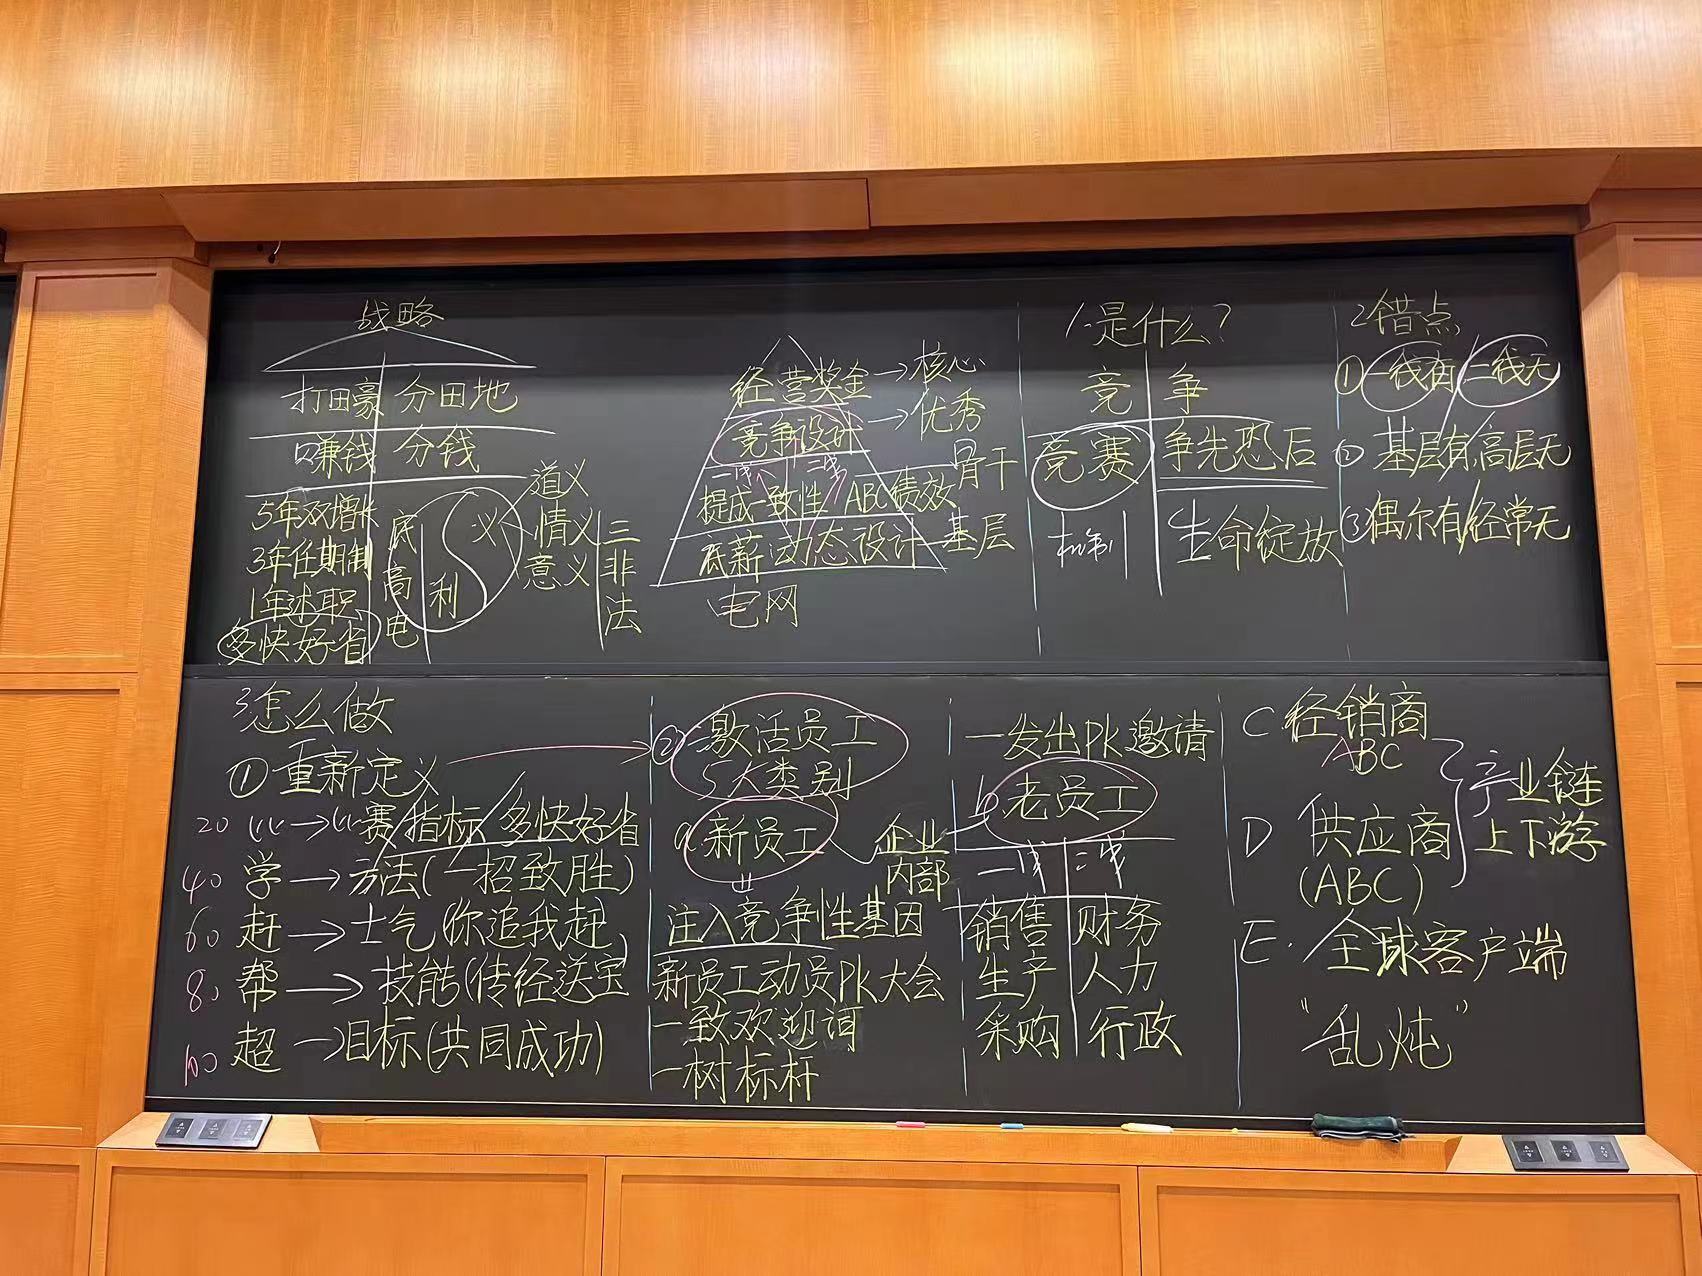 战略
打田豪 分田地
赚钱 分钱
5年双增长
3年任期制
1年述职
多快好省
底高电
义
利
道义
情义
意义
三非法
经营奖金→核心
竞争设计→优秀
一线 二线
提成一致性/ABC绩效 骨干
底薪动态设计 基层
电网
1.是什么?
竞 争
竞赛 争先恐后
机制 生命绽放
2错点
①一线有/二线无
②基层有/高层无
③偶尔有/经常无
3怎么做
①重新定义
20 比→比赛/指标/多快好省
40 学→方法(一招致胜)
60 赶→士气(你追我赶)
80 帮→技能(传经送宝
100 超→目标(共同成功)
②激活员工
5大类别
a.新员工
企业
内部
注入竞争性基因
新员工动员PK大会
一致欢迎词
一树标杆
一发出PK邀请
b老员工
一线 二线
销售 财务
生产 人力
采购 行政
C 经销商
ABC
D 供应商
(ABC)
产业链
上下游
E. 全球客户端
"乱炖"